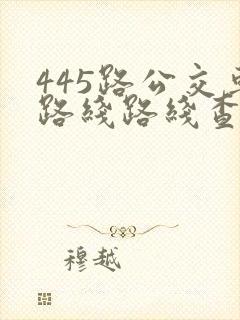 445路公交
路线路线查
穆越